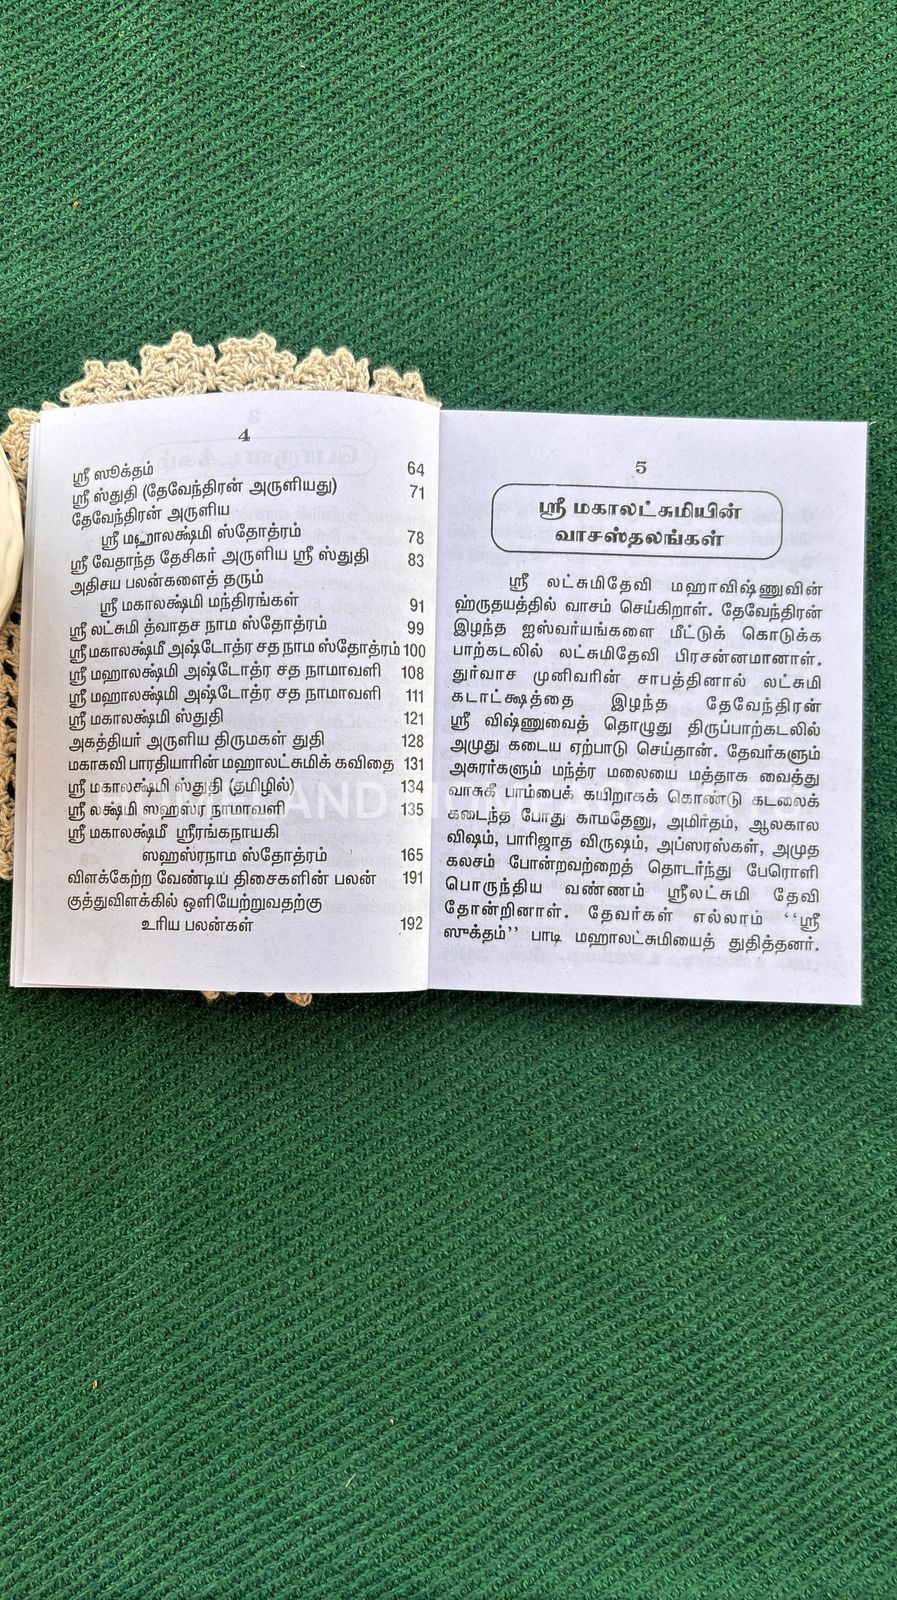 4
ஸ்ரீ ஸூக்தம் 64
ஸ்ரீ ஸ்துதி (தேவேந்திரன் அருளியது) 71
தேவேந்திரன் அருளிய
ஸ்ரீ மஹாலக்ஷ்மி ஸ்தோத்ரம் 78
ஸ்ரீ வேதாந்த தேசிகர் அருளிய ஸ்ரீ ஸ்துதி 83
அதிசய பலன்களைத் தரும்
ஸ்ரீ மகாலக்ஷ்மி மந்திரங்கள் 91
ஸ்ரீ லட்சுமி த்வாதச நாம ஸ்தோத்ரம் 99
ஸ்ரீமகாலக்ஷ்மீ அஷ்டோத்ர சத நாம ஸ்தோத்ரம் 100
ஸ்ரீ மஹாலக்ஷ்மி அஷ்டோத்ர சத நாமாவளி 108
ஸ்ரீ மஹாலக்ஷ்மி அஷ்டோத்ர சத நாமாவளி 111
ஸ்ரீ மகாலக்ஷ்மி ஸ்துதி 121
அகத்தியர் அருளிய திருமகள் துதி 128
மகாகவி பாரதியாரின் மஹாலட்சுமிக் கவிதை 131
ஸ்ரீ மகாலக்ஷ்மி ஸ்துதி (தமிழில்) 134
ஸ்ரீ லக்ஷ்மி ஸஹஸ்ர நாமாவளி 135
ஸ்ரீ மகாலக்ஷ்மீ ஸ்ரீரங்கநாயகி
ஸஹஸ்ரநாம ஸ்தோத்ரம் 165
விளக்கேற்ற வேண்டிய் திசைகளின் பலன் 191
குத்துவிளக்கில் ஒளியேற்றுவதற்கு
உரிய பலன்கள் 192
5
ஸ்ரீ மகாலட்சுமியின்
வாசஸ்தலங்கள்
ஸ்ரீ லட்சுமிதேவி மஹாவிஷ்ணுவின்
ஹ்ருதயத்தில் வாசம் செய்கிறாள். தேவேந்திரன்
இழந்த ஐஸ்வர்யங்களை மீட்டுக் கொடுக்க
பாற்கடலில் லட்சுமிதேவி பிரசன்னமானாள்.
துர்வாச முனிவரின் சாபத்தினால் லட்சுமி
கடாட்க்ஷத்தை இழந்த தேவேந்திரன்
ஸ்ரீ விஷ்ணுவைத் தொழுது திருப்பாற்கடலில்
அமுது கடைய ஏற்பாடு செய்தான். தேவர்களும்
அசுரர்களும் மந்த்ர மலையை மத்தாக வைத்து
வாசுகி பாம்பைக் கயிறாகக் கொண்டு கடலைக்
கடைந்த போது காமதேனு, அமிர்தம், ஆலகால
விஷம், பாரிஜாத விருஷம், அப்ஸரஸ்கள், அமுத
கலசம் போன்றவற்றைத் தொடர்ந்து பேரொளி
பொருந்திய வண்ணம் ஸ்ரீலட்சுமி தேவி
தோன்றினாள். தேவர்கள் எல்லாம் ‘‘ஸ்ரீ
ஸுக்தம்’’ பாடி மஹாலட்சுமியைத் துதித்தனர்.